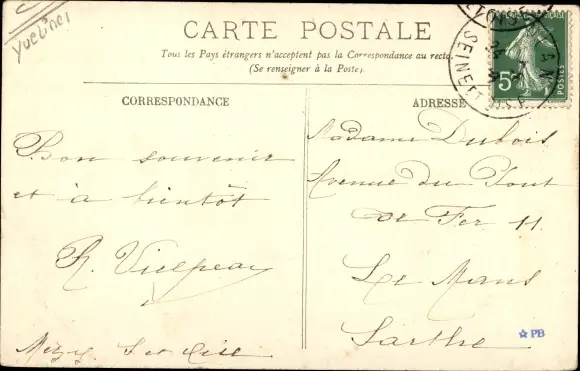 Yvelines
CARTE POSTALE
Tous les Pays étrangers n'acceptent pas la Correspondance au recto
(Se renseigner à la Poste).
CORRESPONDANCE
Bon souvenir
et à bientôt
R. Vielpeau
S et Oise
ADRESSE
Madame Dubois
Avenue du Pont
de Fer 11
Le Mans
Sarthe
SEINE ET
5c
POSTES
PB